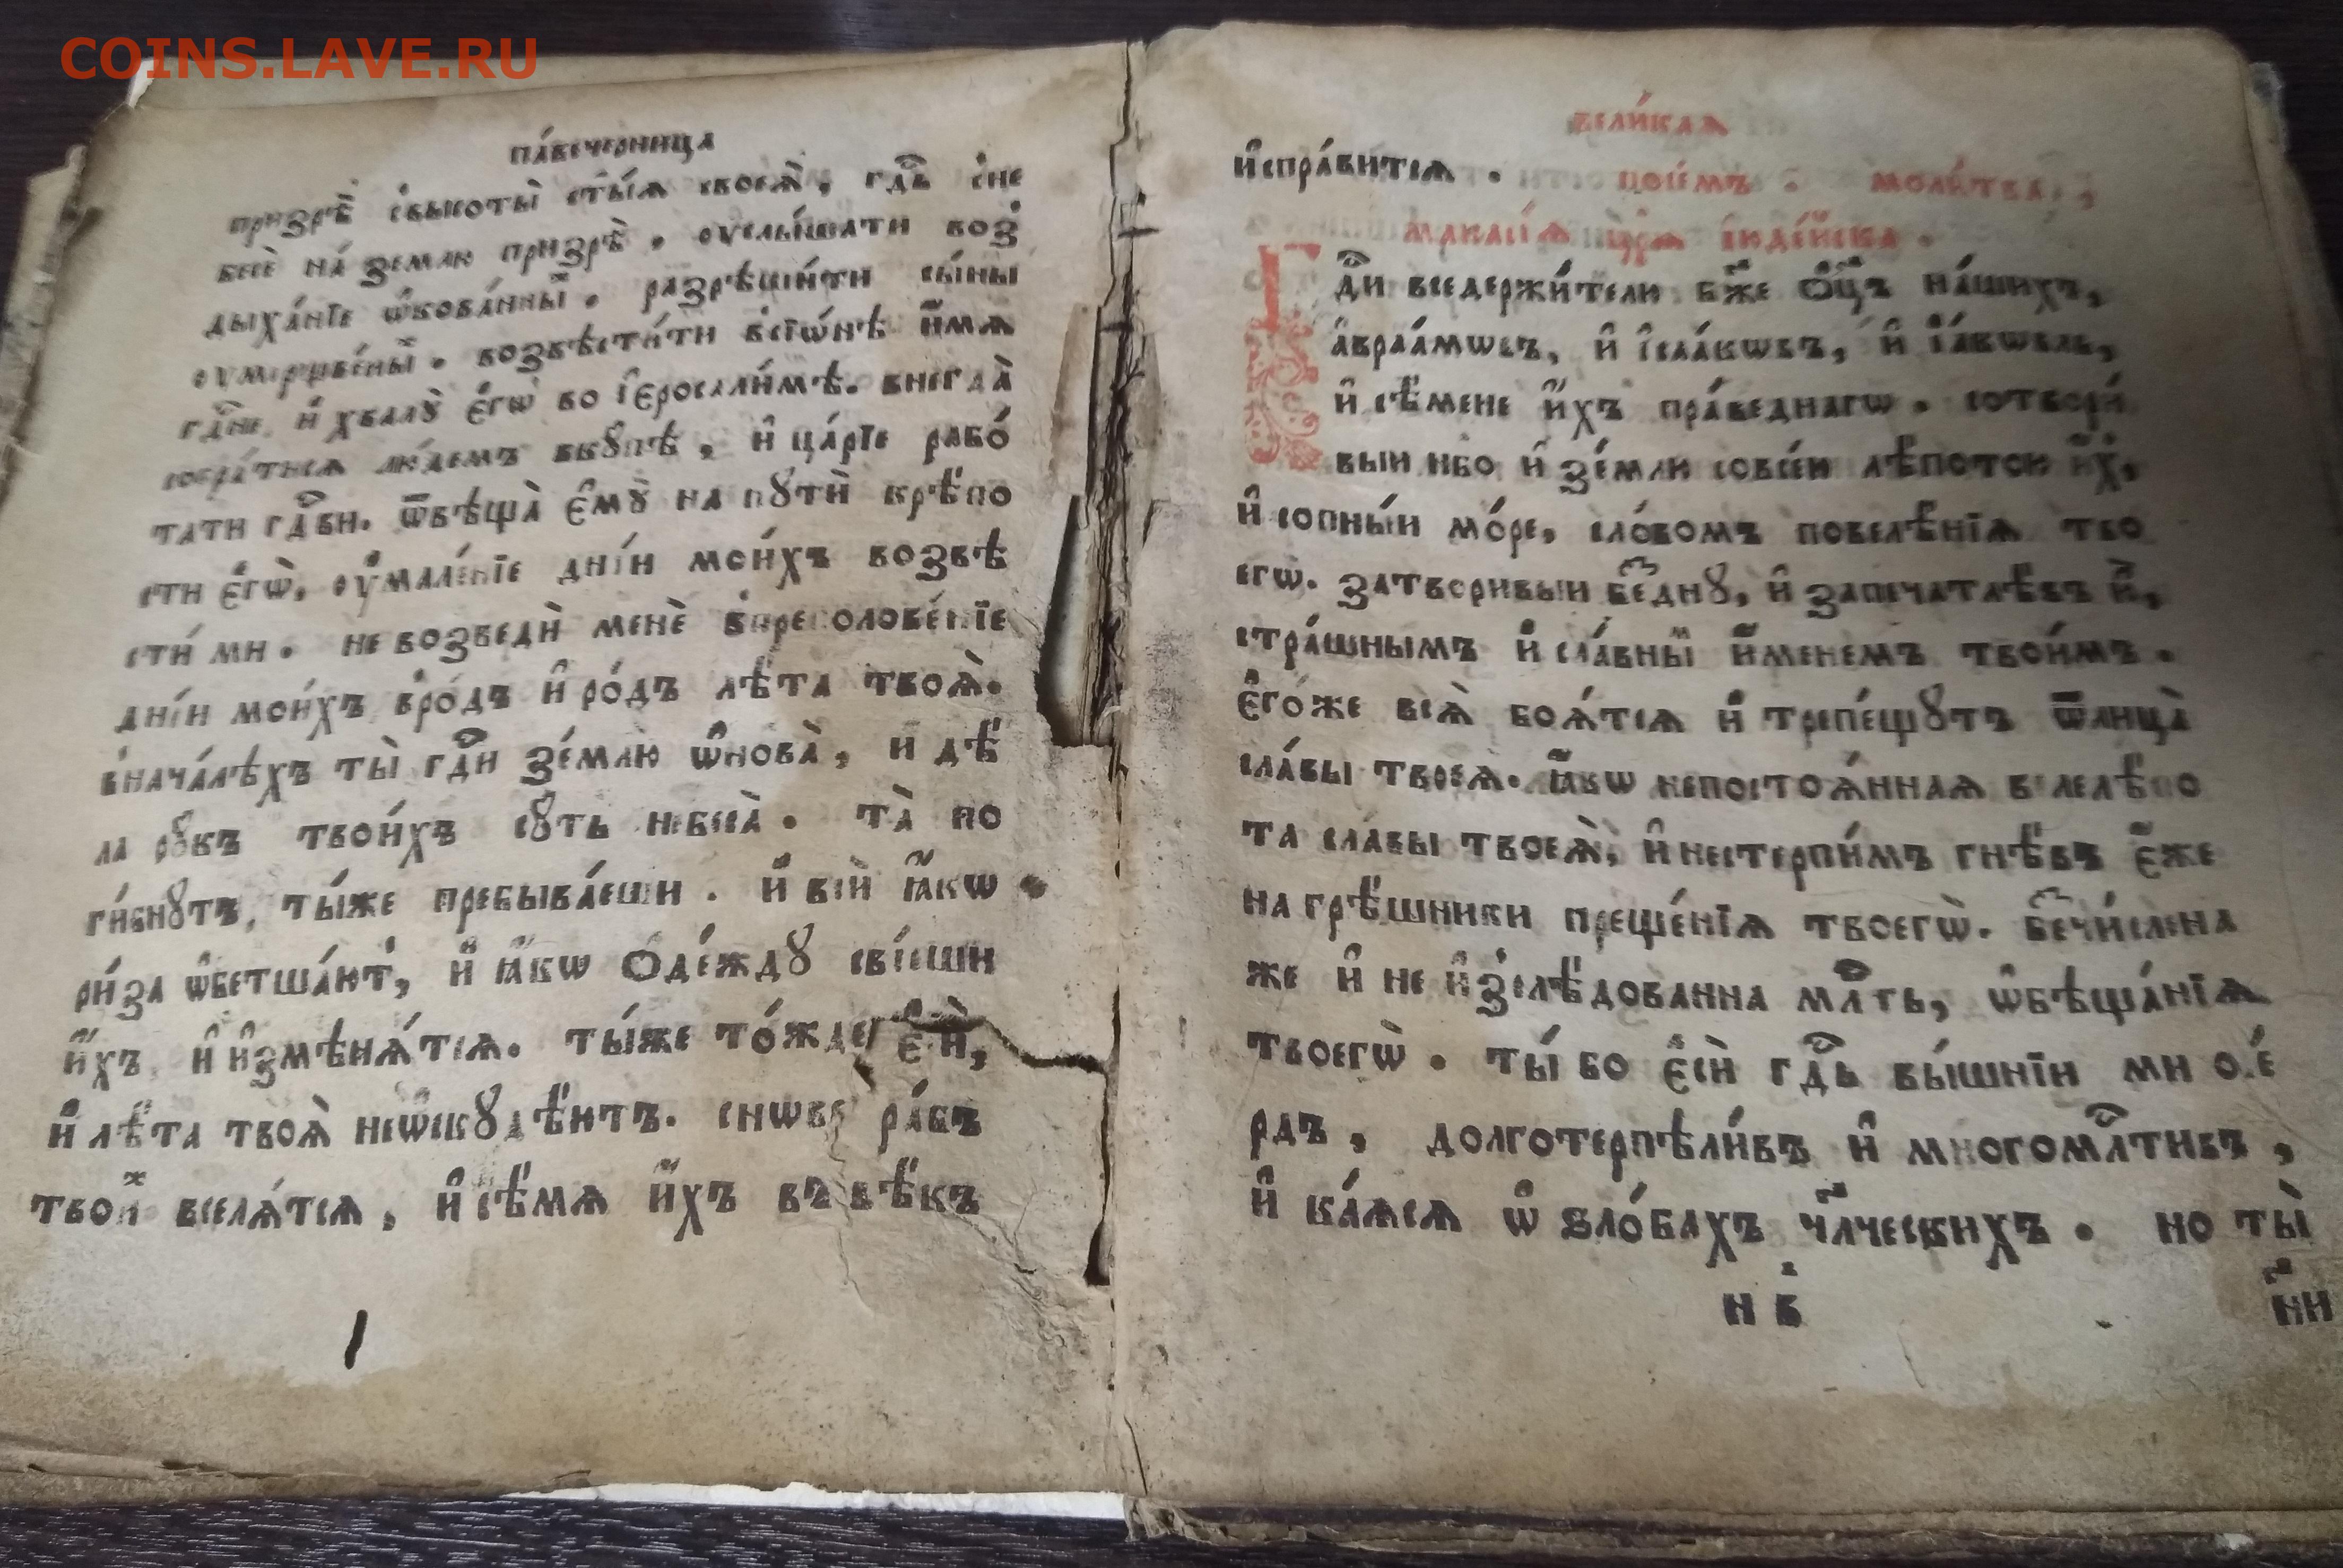 COINS.LAVE.RU
па́вечерница
призрѣ̀ свысоты̀ ст҃ы́ѧ своеѧ̀, гдⷭ҇ь сне
бесѐ на́ землю призрѣ̀. оуслы́шати воз
дыха́нїе ѡ҆кова́нныⷯ. разрѣши́ти сы́ны
оумерщве́ныⷯ. возвѣсти́ти всїѡ́нѣ и҆́мѧ
гдⷭ҇не, и҆ хвалꙋ̀ є҆гѡ̀ во і҆єросали́мѣ. внегда̀
собра́тисѧ лю́демъ вкꙋ́пѣ, и҆ ца́рїе рабо́
тати гдⷭ҇ви. ѿвѣща̀ є҆мꙋ̀ на пꙋтѝ крѣ́по
сти є҆гѡ̀, оу҆мале́нїе дні́и мои́хъ возвѣ
сти́ ми. не возведѝ менѐ впреполове́нїе
дні́и мои́хъ, вро́дъ и҆ ро́дъ лѣ́та твоѧ̀.
внача́лѣхъ ты̀ гдⷭ҇и зе́млю ѡ҆снова̀, и҆ дѣ́
ла рꙋ́къ твои́хъ сꙋ́ть небеса̀. та̀ по
ги́бнꙋтъ, ты́же пребыва́еши. и҆ всѝ ꙗ҆́кѡ
ри́за ѡ҆бетша́ютⸯ, и҆ ꙗ҆́кѡ ѻ҆де́ждꙋ свїе́ши
и҆́хъ, и҆ и҆змѣнѧ́тсѧ. ты́же то́жде є҆сѝ,
и҆ лѣ́та твоѧ̀ неѡ҆скꙋдѣ́ютъ. сн҃ове ра́бъ
твои́ⷯ вселѧ́тсѧ, и҆ сѣ́мѧ и҆́хъ въ вѣ́къ
вели́каѧ
и҆спра́витсѧ. пои́мъ. моли́тва,
манасі́ѧ цр҃ѧ і҆ꙋде́йска.
Гдⷭ҇и вседержи́тели бж҃е ѻ҆ц҃ъ на́шихъ,
а҆враа́мѡвъ, и҆ і҆саа́кѡвъ, и҆ і҆а́кѡвль,
и҆ сѣ́мене и҆́хъ пра́веднагѡ. сотвори́
выи нб҃о и҆ зе́мли совсе́и лѣ́потои и҆́хⸯ,
и҆ сопны́и мо́ре, сло́вомъ повелѣ́нїѧ тво
егѡ̀. затворивыи беⷥднꙋ, и҆ запечатлѣ́въ ю҆̀,
стра́шнымъ и҆ сла́вныⷨ и҆́менемъ твои́мъ.
є҆го́же всѧ̀ боѧ́тсѧ и҆ трепе́щꙋтъ ѿлица̀
сла́вы твоеѧ̀. ꙗ҆́кѡ непостоѧ́ннаѧ велелѣ́по
та сла́вы твоеѧ̀, и҆ нестерпи́мъ гнѣ́въ є҆́же
на грѣ́шники преще́нїѧ твоегѡ̀. беⷥчи́слена
же и҆ не и҆зслѣ́дованна млⷭ҇ть, ѡ҆бѣща́нїѧ
твоегѡ̀. ты́ бо є҆сѝ гдⷭ҇ь вы́шнїи милосе́
рдъ, долготерпѣли́въ и҆ многомлⷭ҇тивъ,
и҆ ка́ѧсѧ ѡ҆ ѕло́бахъ чл҃ческихъ. но ты̀
н в